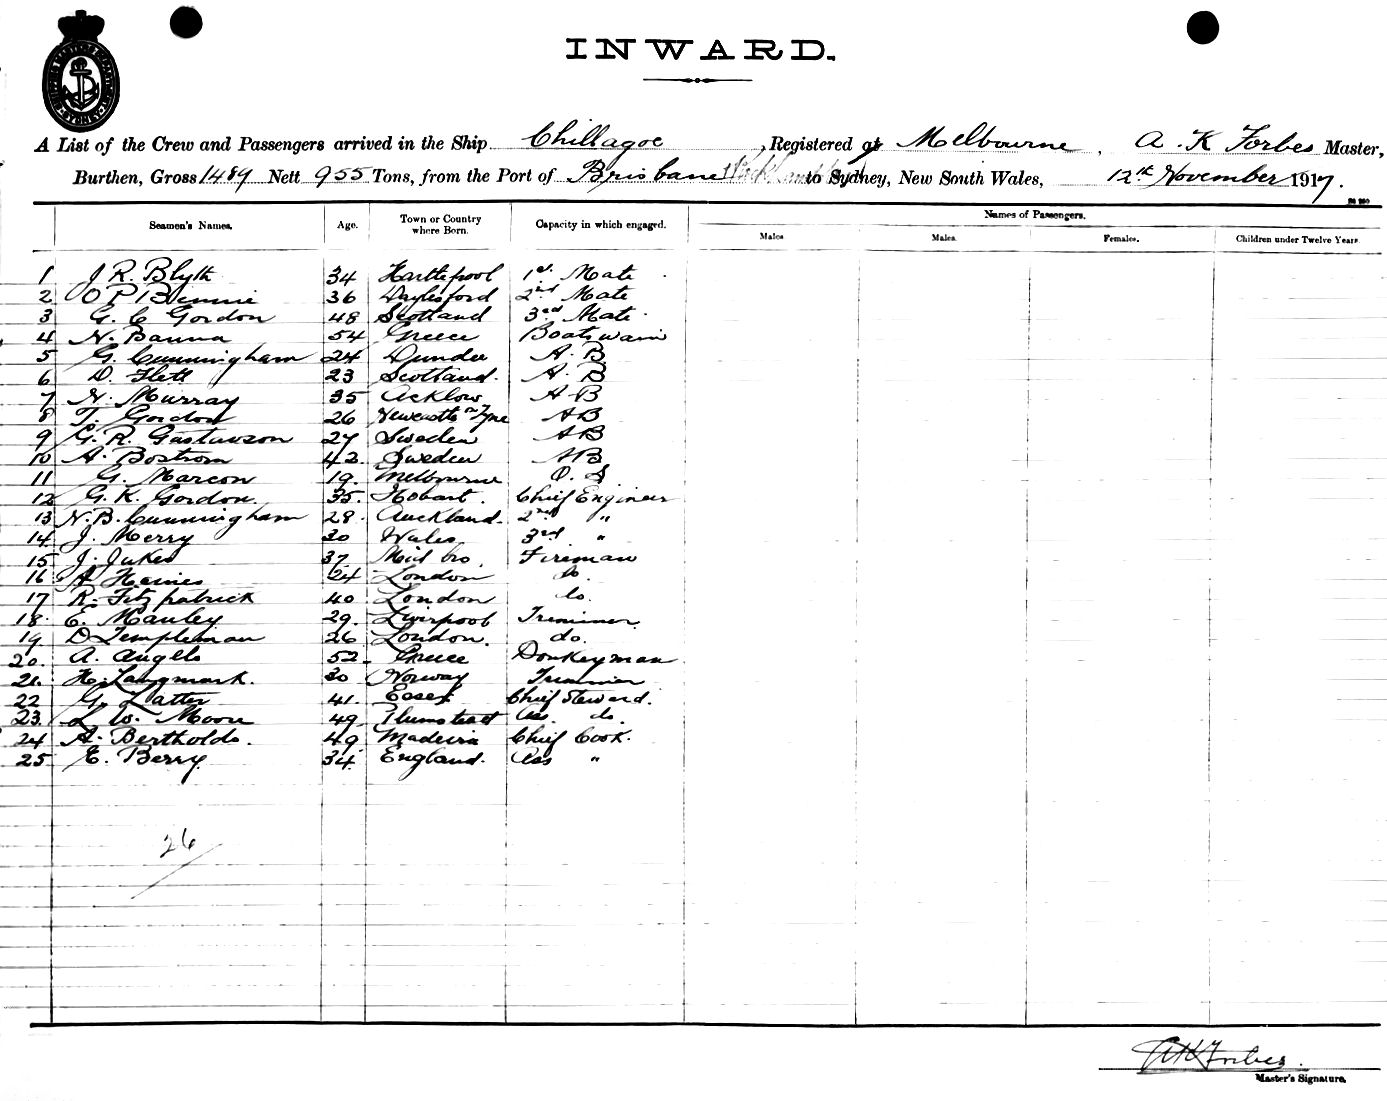 INWARD.
A List of the Crew and Passengers arrived in the Ship Chillagoe, Registered at Melbourne, A. K Forbes Master,
Burthen, Gross 1489 Nett 955 Tons, from the Port of Brisbane to Sydney, New South Wales, 12th November 1917.
Seamen's Names. Age. Town or Country where Born. Capacity in which engaged. Names of Passengers.
Males Males. Females. Children under Twelve Years.
1 J R. Blyth 34 Hartlepool 1st Mate
2 O P Bennie 36 Daylesford 2nd Mate
3 G. C Gordon 48 Scotland 3rd Mate
4 N. Banna 54 Greece Boatswain
5 G. Cunningham 24 Dundee A. B
6 D. Flett 23 Scotland. A. B
7 N. Murray 35 Acklow A B
8 T. Gordon 26 Newcastle on Tyne AB
9 G. R. Gustavson 27 Sweden AB
10 A. Bostrom 42 Sweden AB
11 G. Marcon 19. Melbourne O. S.
12 G. K. Gordon. 35. Hobart. Chief Engineer
13 N. B. Cunningham 28. Auckland. 2nd "
14 J. Merry 30 Wales 3rd "
15 J. Jukes 37. Mid bro. Fireman
16 A Haines 24 London do.
17 R. Fitzpatrick 40 London do.
18. E. Manley 29. Liverpool Trimmer.
19 D Templeman 26 London. do.
20. A. Angelo 52 Greece Donkeyman
21. H. Langmark. 30 Norway Trimmer
22 G. Latter 41. Essex Chief Steward.
23. L W. Moon 49. Plumstead Ass. do.
24 A. Bertholdo. 49. Madeira Chief Cook.
25 E. Berry 34. England. Ass "
26
A K Forbes.
Master's Signature.